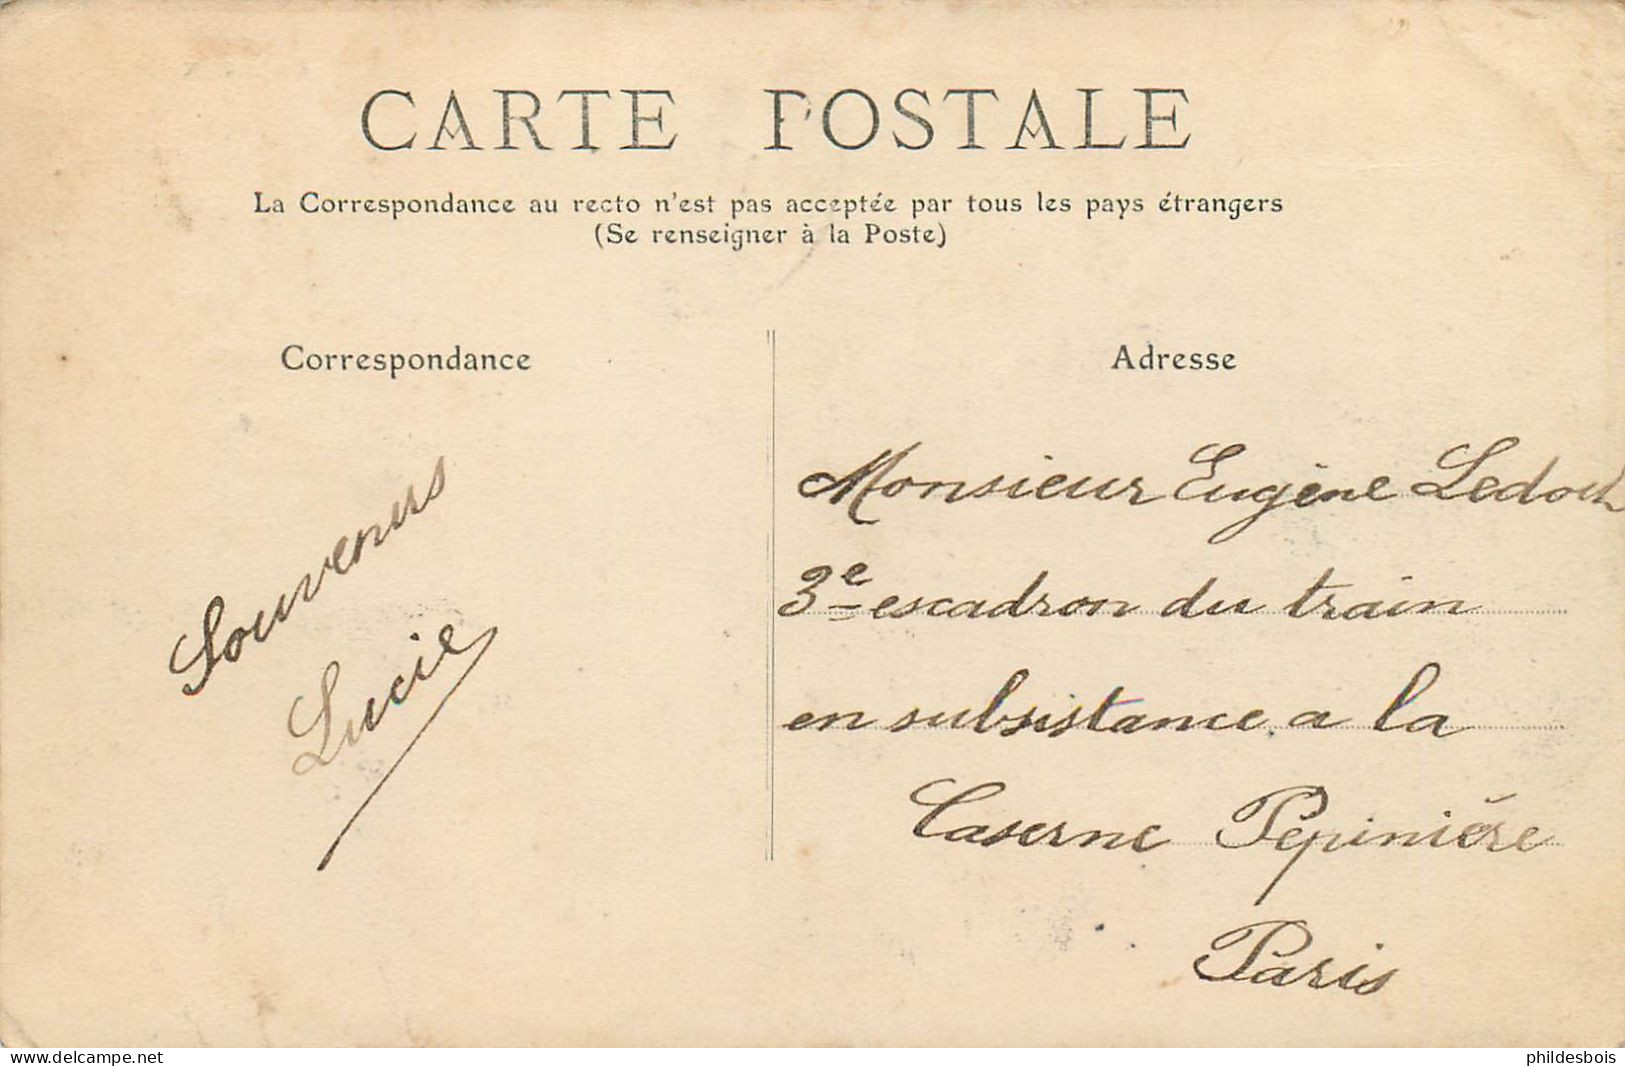 CARTE POSTALE
La Correspondance au recto n'est pas acceptée par tous les pays étrangers
(Se renseigner à la Poste)
Correspondance
Souvenirs
Lucie
Adresse
Monsieur Eugène
3e escadron du train
en subsistance a la
Caserne Pépinière
Paris
www.delcampe.net
phildesbois